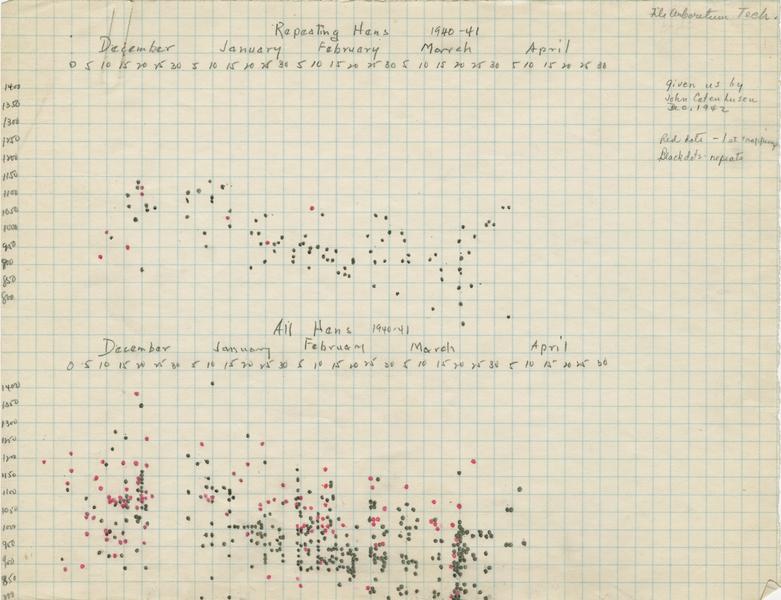 File Arboretum Tech.
Repeating Hens 1940-41
December January February March April
0 5 10 15 20 25 30 5 10 15 20 25 30 5 10 15 20 25 30 5 10 15 20 25 30 5 10 15 20 25 30
given us by
John Catenhusen
Dec. 1942
Red dots - 1st trapping
Black dots - repeats
1400
1350
1300
1250
1200
1150
1100
1050
1000
950
900
850
800
All Hens 1940-41
December January February March April
0 5 10 15 20 25 30 5 10 15 20 25 30 5 10 15 20 25 30 5 10 15 20 25 30 5 10 15 20 25 30
1400
1350
1300
1250
1200
1150
1100
1050
1000
950
900
850
800